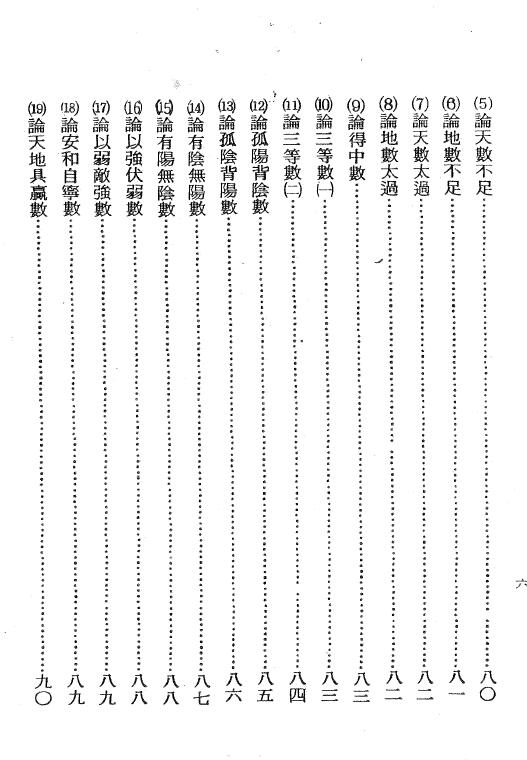 (5)論天數不足……八〇
(6)論地數不足……八一
(7)論天數太過……八二
(8)論地數太過……八二
(9)論得中數……八三
(10)論三等數㈠……八三
(11)論三等數㈡……八四
(12)論孤陽背陰數……八五
(13)論孤陰背陽數……八六
(14)論有陰無陽數……八七
(15)論有陽無陰數……八八
(16)論以強伏弱數……八八
(17)論以弱敵強數……八九
(18)論安和自寧數……八九
(19)論天地具贏數……九〇
六